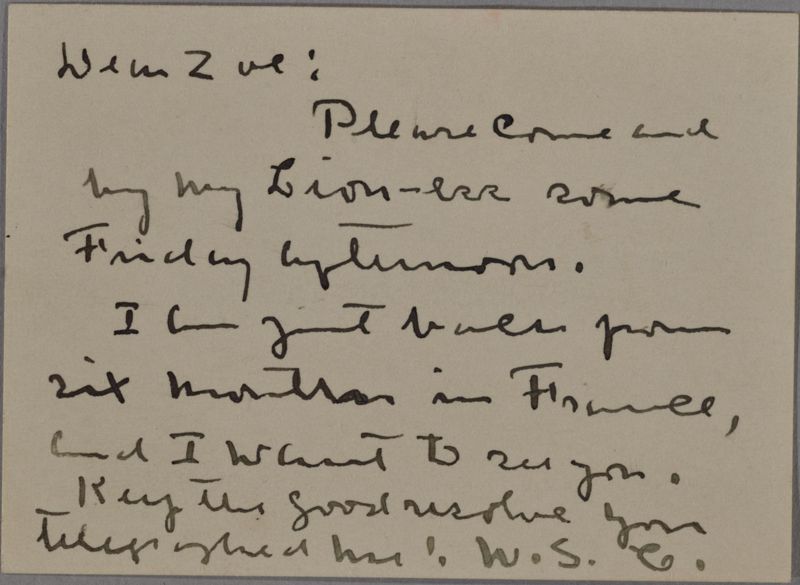 Dear Zoe:
Please come and
my Lion-ess some
Friday afternoon.
I am just back from
six months in France,
and I want to see you.
Keep the good resolve you
telegraphed me! W. S. C.